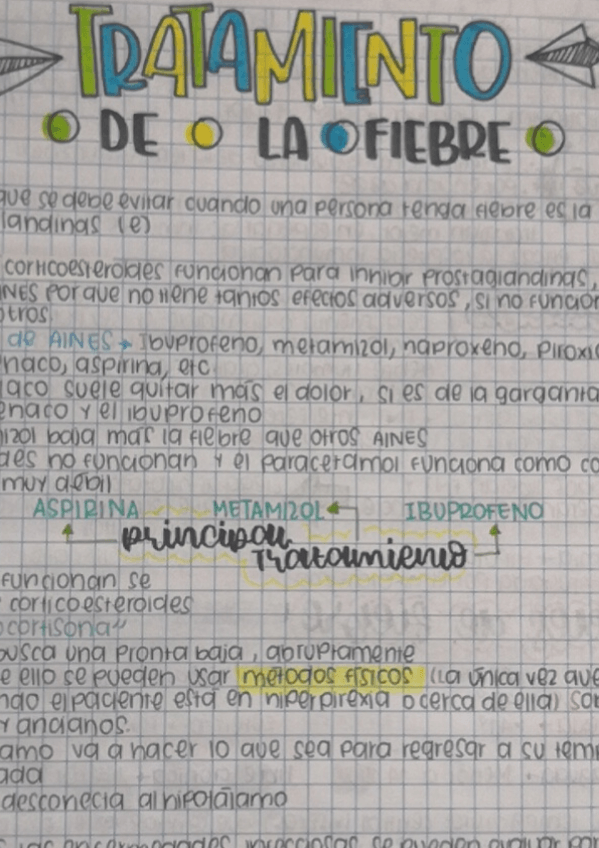 TRATAMIENTO
DE LA FIEBRE
que se debe evitar cuando una persona tenga fiebre es la
landinas (e)
corticoesteroides funcionan para inhibir prostaglandinas,
INES porque no tiene tantos efectos adversos, si no funcion
otros
de AINES → Ibuprofeno, metamizol, naproxeno, piroxic
naco, aspirina, etc
laco suele quitar más el dolor, si es de la garganta
enaco y el ibuprofeno
izol baja mas la fiebre que otros AINES
des no funcionan y el paracetamol funciona como co
muy debil
ASPIRINA METAMIZOL IBUPROFENO
principal
Tratamiento
funcionan se
corticoesteroides
ocortisona"
busca una pronta baja, abruptamente
e ello se pueden usar métodos físicos (La única vez que
ndo el paciente está en hiperpirexia o cerca de ella) so
y ancianos.
amo va a hacer lo que sea para regresar a su tem
ada
desconecta al hipotálamo
las enfermedades infecciosas se pueden